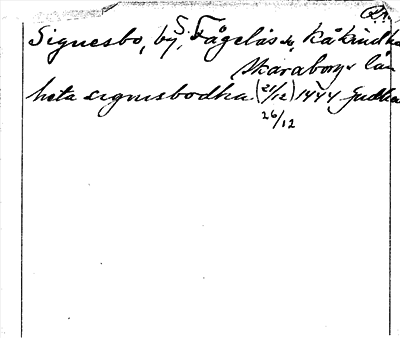 Signesbo, by, S. Fågelås sn, Kåkinds hd
Skaraborgs län
heta signisbodha (21/12) 1444
26/12